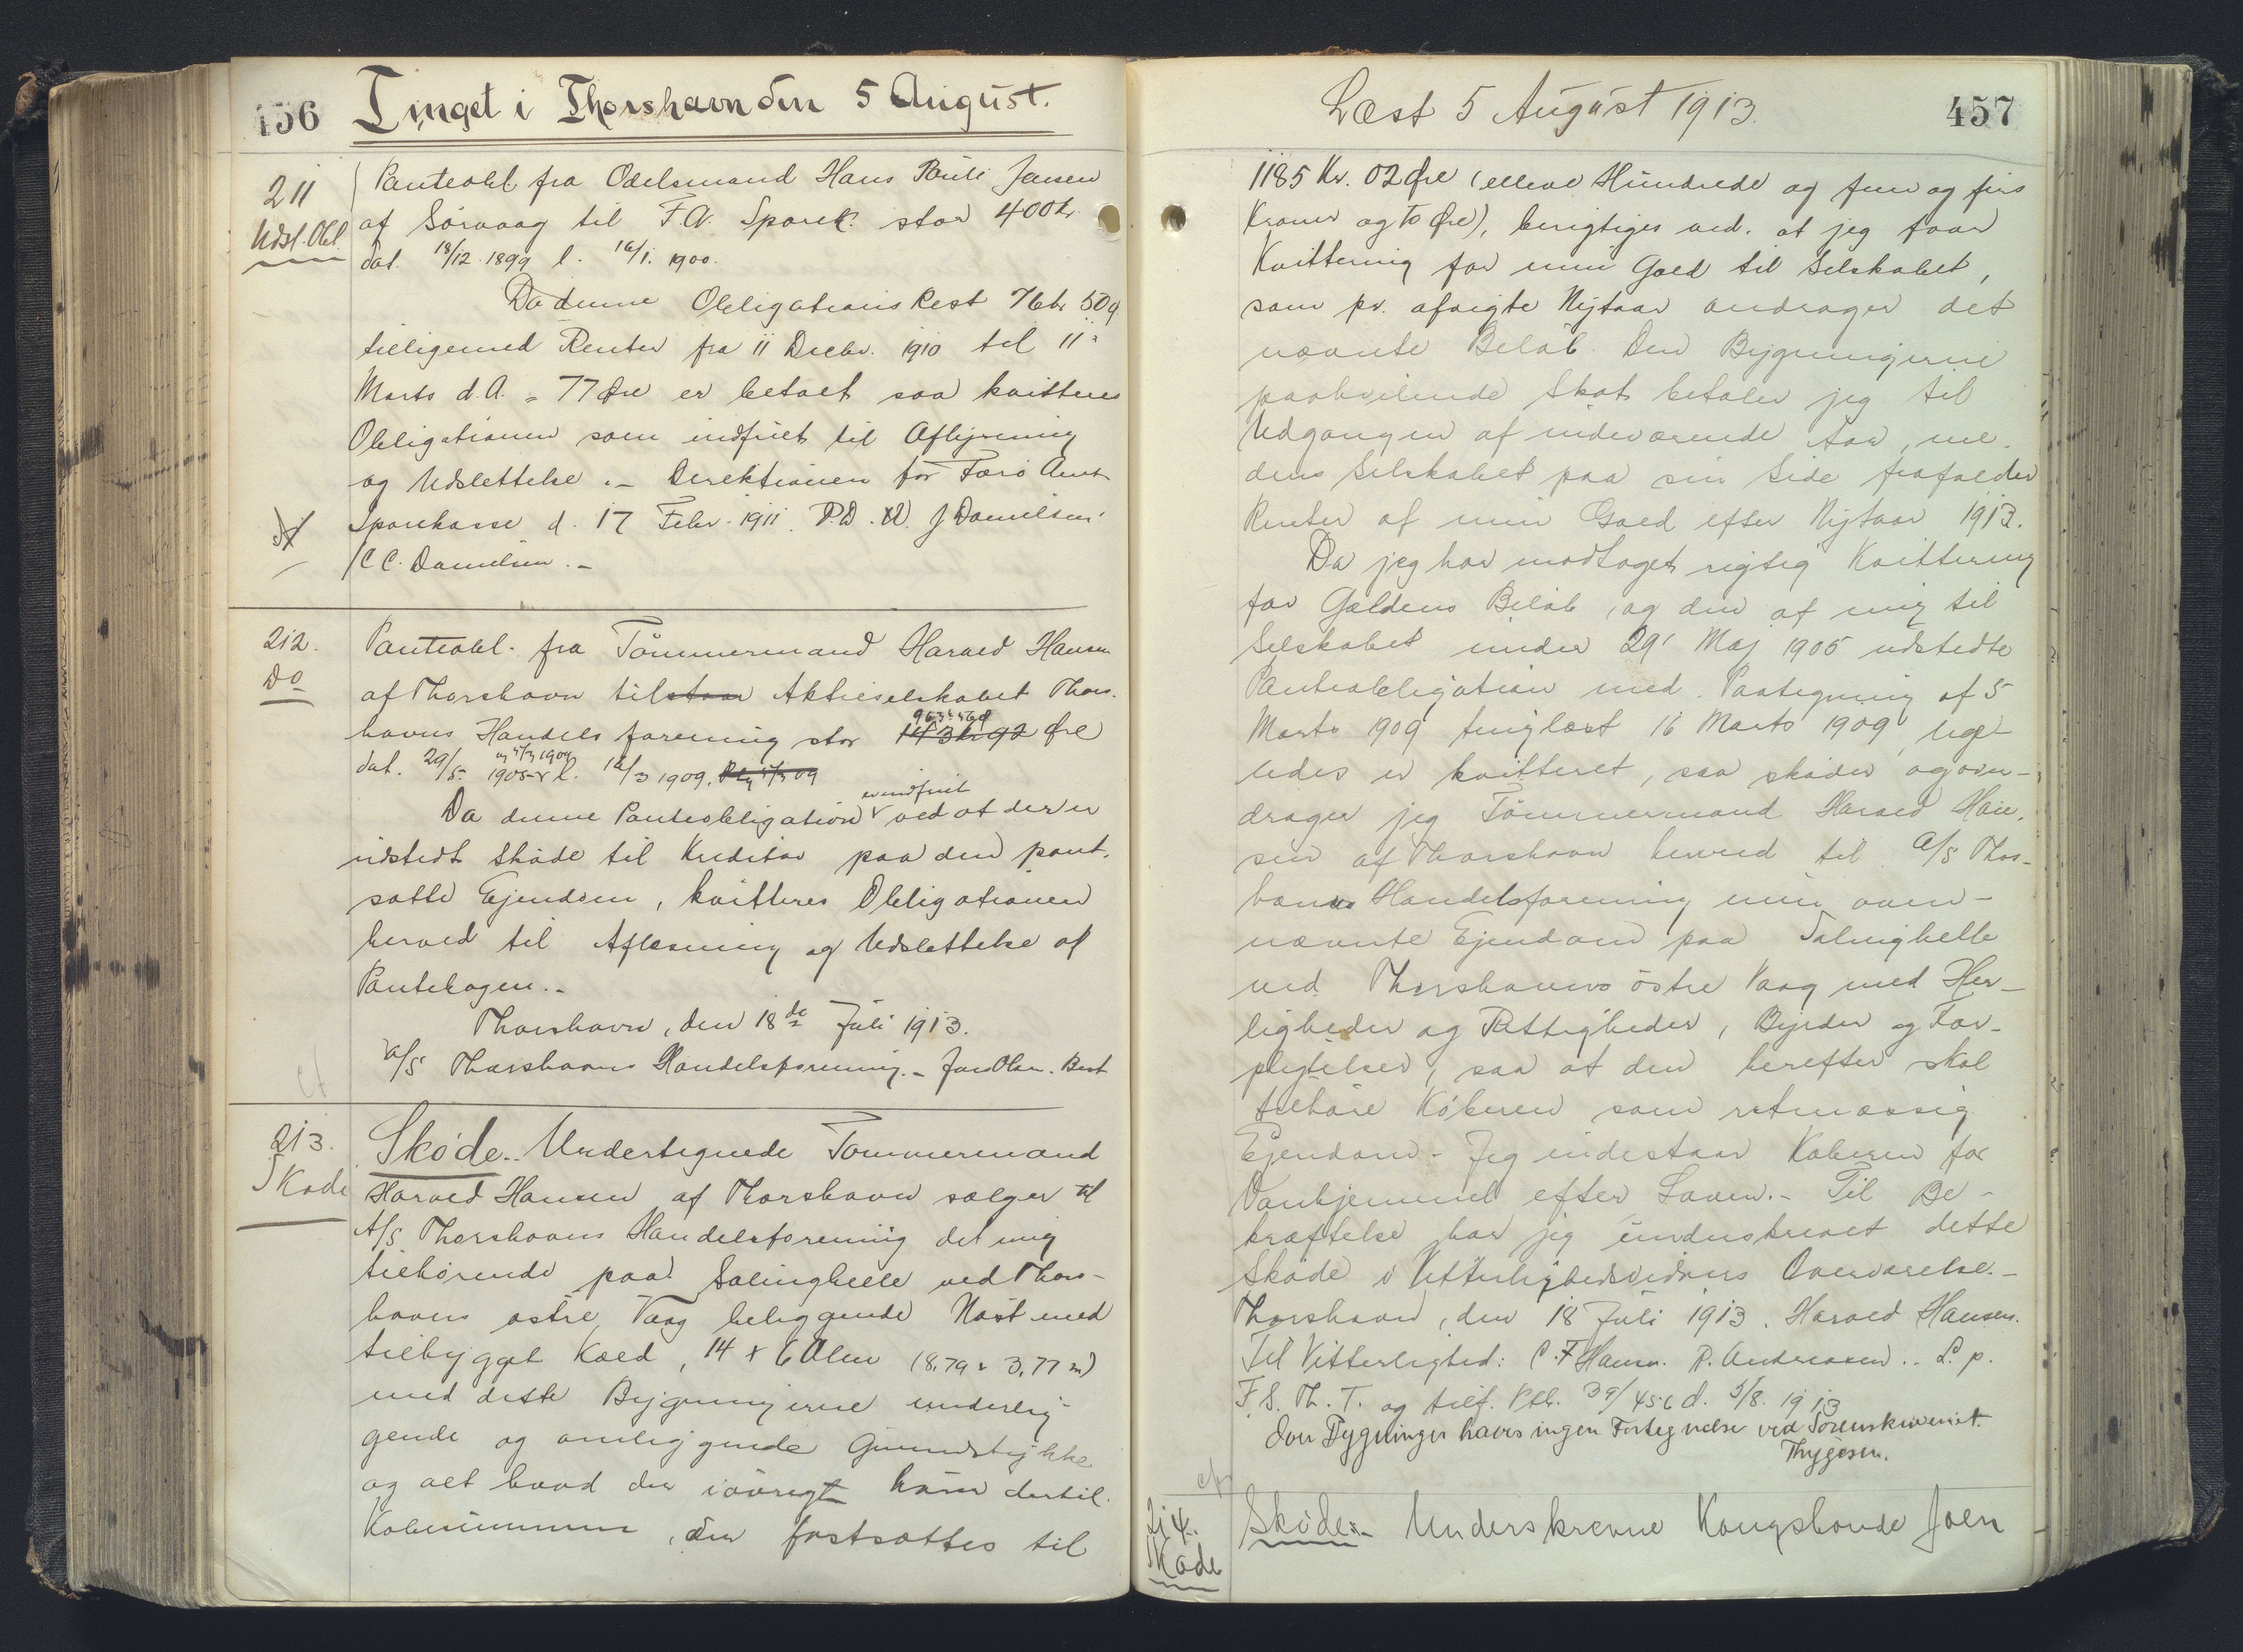 156 Tinget i Thorshavn den 5 August.
211 Panteobl fra Odelsmand Hans Pauli Jensen
Udsl. Obl. af Sörvaag til F.A. Spark. stor 400 kr.
dat. 18/12 1899 l. 16/1. 1900.
Da denne Obligations Rest 76 kr 50 ø
tilligemed Renter fra 11 Decbr. 1910 til 11
Marts d.A. = 77 Øre er betalt saa kvitteres
Obligationen som indfriet til Aflysning
og Udslettelse. – Direktionen for Færø Amts
Sparekasse d. 17 Febr. 1911. P.D.V. J Danielsen
/C C. Danielsen. –
212. Panteobl. fra Tömmermand Harald Hansen
Do af Thorshavn til staar Aktieselskabet Thors-
963 kr 56 ø
havns Handels forening stor 143 kr 92 Øre
og 5/3 1909
dat. 29/5 1905 l. 16/3 1909. 5/3 09
er indfriet
Da denne Panteobligation ved at der er
udstedt Skøde til Kreditor paa den pant-
satte Ejendom, kvitteres Obligationen
herved til Aflæsning og Udslettelse af
Pantebogen. –
Thorshavn, den 18de Juli 1913.
A/S Thorshavns Handelsforening. – Joen Olsen. Best
213. Skøde.. Undertegnede Tømmermand
Skøde Harald Hansen af Thorshavn sælger til
A/S Thorshavns Handelsforening det mig
tilhørende paa Salinghelle ved Thors-
havns østre Vaag beliggende Nøst med
tilbygget Kæld, 14 x 6 Alen (8,79 x 3,77 m)
med dette Bygningerne underlig-
gende og omliggende Grundstykke
og alt hvad der iøvrigt hører dertil.
Købesummen, der fastsættes til
Læst 5 August 1913. 457
1185 Kr. 02 Øre (elleve Hundrede og fem og firs
Kroner og to Øre), berigtiges ved. at jeg faar
Kvittering for min Gæld til Selskabet,
som pr. afvigte Nytaar andrager det
nævnte Beløb. Den Bygningerne
paahvilende Skat betaler jeg til
Udgangen af indeværende Aar, me-
dens Selskabet paa sin Side frafalder
Renter af min Gæld efter Nytaar 1913.
Da jeg har modtaget rigtig Kvittering
for Gældens Beløb, og den af mig til
Selskabet under 29' Maj 1905 udstedte
Panteobligation med Paategning af 5
Marts 1909 tinglæst 16 Marts 1909, lige-
ledes er kvitteret, saa skøder og over-
drager jeg Tömmermand Harald Han-
sen af Thorshavn herved til A/S Thors-
havns Handelsforening min oven-
nævnte Ejendom paa Salinghelle
ved Thorshavns østre Vaag med Her-
ligheder og Rettigheder, Byrder og For-
pligtelser, saa at den herefter skal
tilhøre Køberen som retmæssig
Ejendom – Jeg indestaar Køberen for
Vanhjemmel efter Loven. – Til Be-
kræftelse har jeg underskrevet dette
Skøde i Vitterlighedsvidners Overværelse. –
Thorshavn, den 18 Juli 1913. Harald Hansen.
Til Vitterlighed: C.F Hansen. P. Andreasen.. L. p.
F. S. Th. T. og tilf. Ptb. 39/456 d. 5/8. 1913
Over Bygninger haves ingen Fortegnelse ved Sorenskriveriet.
Thygesen.
214. Skøde:– Underskrevne Kongsbonde Joen
Skøde